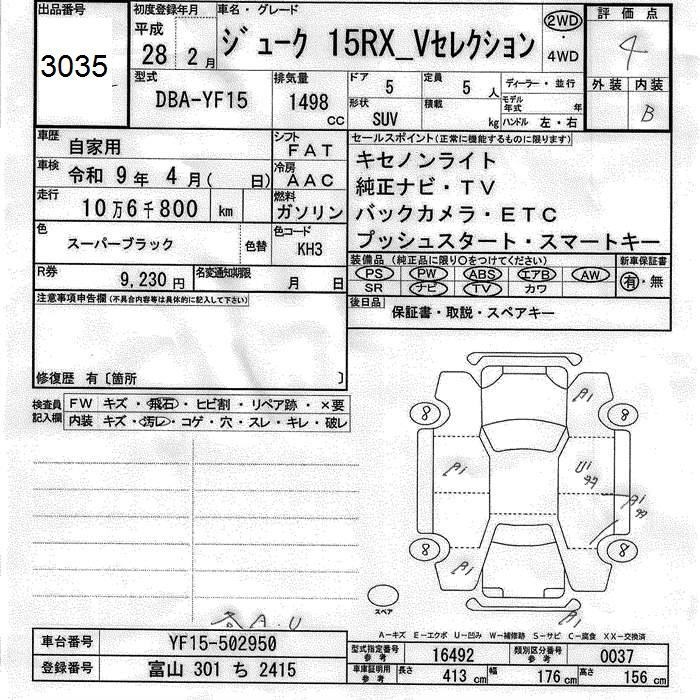 出品番号
3035
初度登録年月
平成
28 2月
車名・グレード
ジューク 15RX_Vセレクション
2WD
・
4WD
評価点
4
外装 内装
B
型式
DBA-YF15
排気量
1498
cc
ドア
5
定員
5 人
ディーラー・並行
形状
SUV
積載
kg
モデル
年式 年
ハンドル 左・右
車歴
自家用
シフト
FAT
車検
令和 9年 4月( 日)
冷房
AAC
走行
10万6千800 km
燃料
ガソリン
色
スーパーブラック
色替
色コード
KH3
R券
9,230円
名変通知期限
月 日
セールスポイント(正常に機能するものに限ります)
キセノンライト
純正ナビ・TV
バックカメラ・ETC
プッシュスタート・スマートキー
装備品 (純正品に限り○をつけてください)
PS PW ABS エアB AW
SR ナビ TV カワ
新車保証書
有・無
後日品
保証書・取説・スペアキー
注意事項申告欄(不具合内容等は具体的に記入して下さい)
修復歴 有〔箇所 〕
検査員
記入欄
FW キズ・飛石・ヒビ割・リペア跡・×要
内装 キズ・汚レ・コゲ・穴・スレ・キレ・破レ
A1
8 8
A1
U1
A1
8 8
A1
A1
スペア
A.U
A-キズ E-エクボ U-凹み W-補修跡 S-サビ C-腐食 XX-交換済
車台番号
YF15-502950
登録番号
富山 301 ち 2415
型式指定番号
参考
16492
類別区分番号
参考
0037
車庫証明用
参考
長さ
413 cm
幅
176 cm
高さ
156 cm